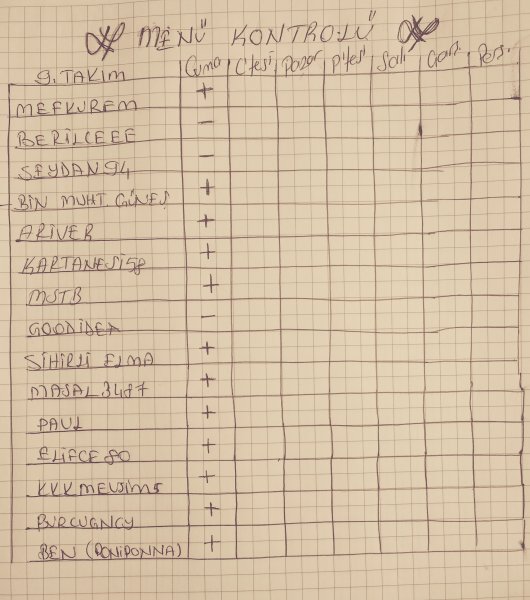 MENÜ KONTROLÜ
9. TAKIM Cuma C'tesi Pazar P'tesi Salı Çarş. Perş.
MEFKUREM +
BERİLCEEE -
SEYDAN94 -
BİN MUHT. GÜNEŞ +
ARİVER +
KARTANESİ58 +
MSTB +
GOODİDEA -
SİHİRLİ ELMA +
MASAL3487 +
PAUL +
ELİFCE80 +
KKKMEVSİMS +
BURCUGNCY +
BEN (PONİPONNA) +